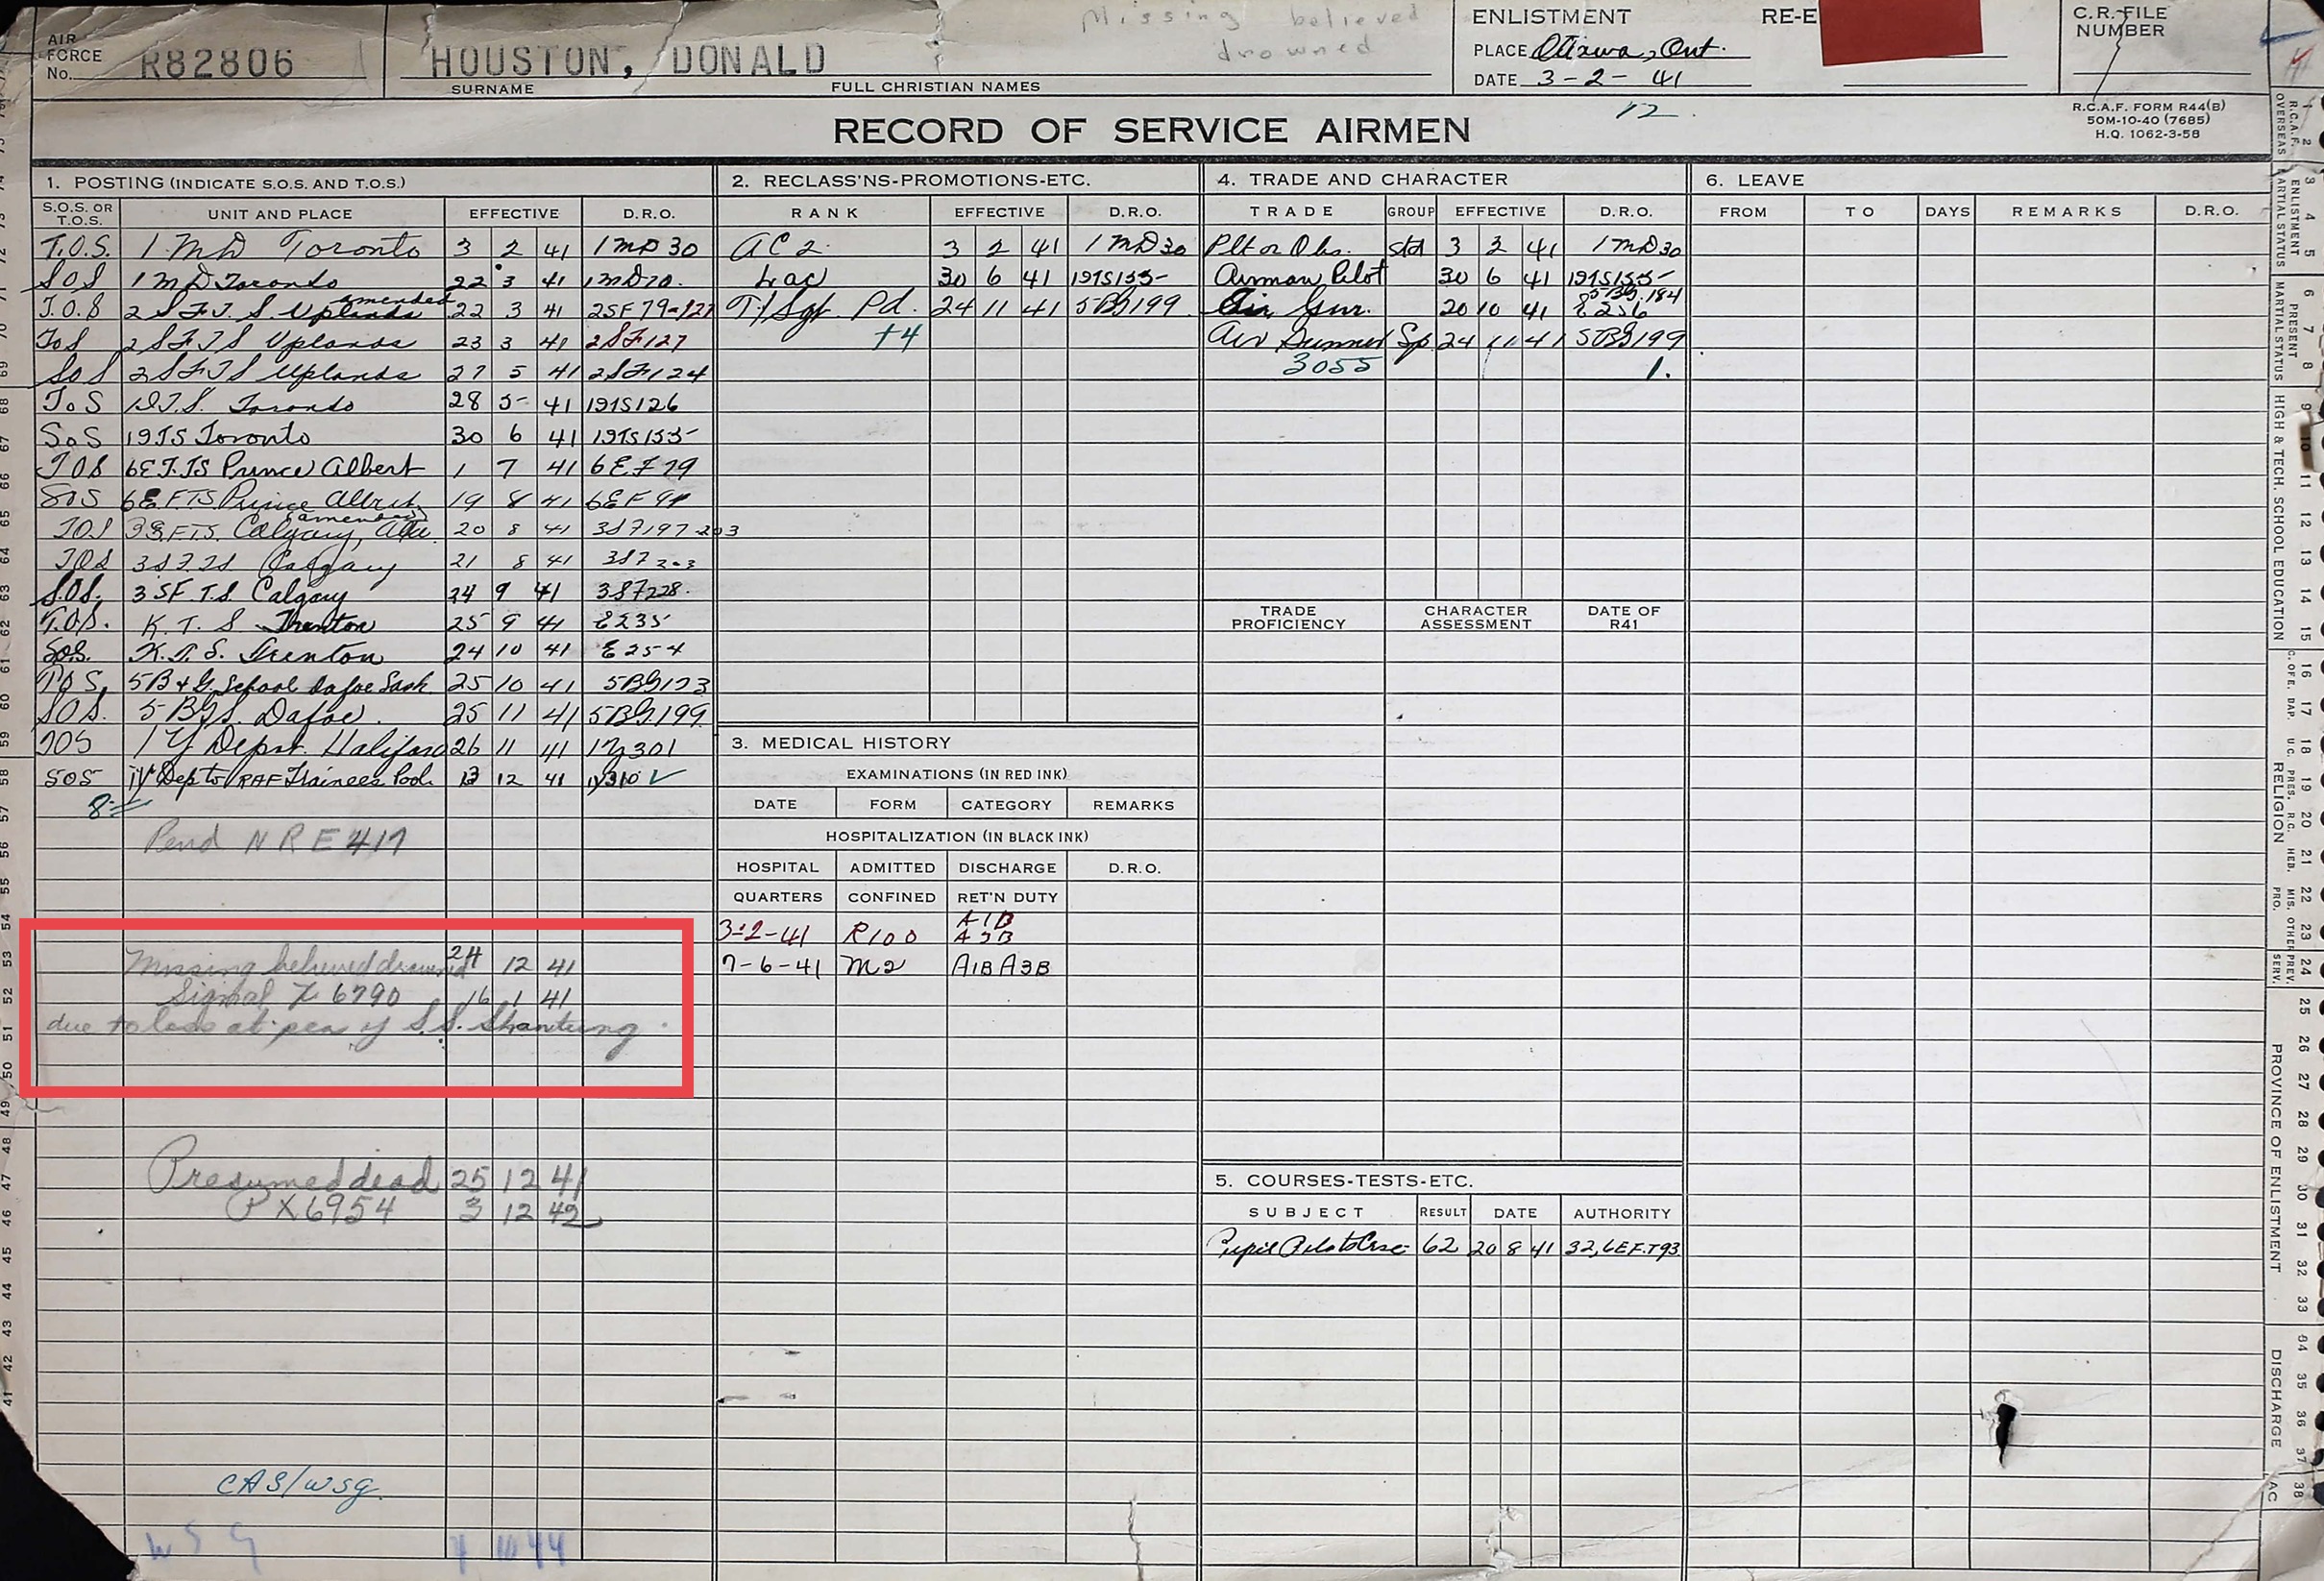 Missing believed
drowned
AIR FORCE No. R82806 HOUSTON, DONALD
SURNAME FULL CHRISTIAN NAMES
ENLISTMENT RE-E
PLACE Ottawa, Ont.
DATE 3-2-41
C.R. FILE NUMBER
12
RECORD OF SERVICE AIRMEN
R.C.A.F. FORM R44(B)
50M-10-40 (7685)
H.Q. 1062-3-58
1. POSTING (INDICATE S.O.S. AND T.O.S.)
S.O.S. OR T.O.S. UNIT AND PLACE EFFECTIVE D.R.O.
T.O.S. 1 MD Toronto 3 2 41 1MD30
SOS 1 MD Toronto 22 3 41 1MD70
amended
T.O.S 2 S.F.T.S. Uplands 22 3 41 2SF79-127
ToS 2 SFTS Uplands 23 3 41 2SF127
SoS 2 SFTS Uplands 27 5 41 2SF124
ToS 1 I.T.S. Toronto 28 5 41 1ITS126
SoS 1 ITS Toronto 30 6 41 1ITS155
TOS 6E.F.TS Prince Albert 1 7 41 6EF79
SOS 6EFTS Prince Albert 19 8 41 6EF
amended
TOS 3S.F.T.S. Calgary, Alta. 20 8 41 3SF197-203
TOS 3SFTS Calgary 21 8 41 3SF203
S.O.S. 3 SF.T.S. Calgary 24 9 41 3SF228.
T.O.S. K.T.S. Trenton 25 9 41 E235
S.O.S. K.T.S. Trenton 24 10 41 E254
T.O.S. 5B & G. School Dafoe Sask 25 10 41 5BG173
SOS. 5 BGS. Dafoe. 25 11 41 5BG.199
TOS 1 Y Depot. Halifax 26 11 41 1Y301
SOS 1Y Dep to RAF Trainees Pool. 13 12 41 1Y310
8
Pend N R E 417
Missing believed drowned 24 12 41
Signal X 6790 16 1 41
due to loss at sea of S.S. Shantung.
Presumed dead 25 12 41
P X6954 3 12 42
CAS/WSG
W S G 10 44
2. RECLASS'NS-PROMOTIONS-ETC.
RANK EFFECTIVE D.R.O.
AC2. 3 2 41 1MD30
Lac 30 6 41 1ITS155
T/Sgt Pd. 24 11 41 5BG199
+4
3. MEDICAL HISTORY
EXAMINATIONS (IN RED INK)
DATE FORM CATEGORY REMARKS
HOSPITALIZATION (IN BLACK INK)
HOSPITAL ADMITTED DISCHARGE D.R.O.
QUARTERS CONFINED RET'N DUTY
3-2-41 R100 A1B A3B
7-6-41 M2 A1B A3B
4. TRADE AND CHARACTER
TRADE GROUP EFFECTIVE D.R.O.
Plt or Obs. std 3 2 41 1MD30
Airman Pilot 30 6 41 1ITS155
Air Gnr. 20 10 41 5BG.184
E256
Air Gunner Sp 24 11 41 5BG199
3055 1.
TRADE PROFICIENCY CHARACTER ASSESSMENT DATE OF R41
5. COURSES-TESTS-ETC.
SUBJECT RESULT DATE AUTHORITY
Pupil Pilots Crse 62 20 8 41 32,6EF.T93
6. LEAVE
FROM TO DAYS REMARKS D.R.O.
R.C.A.F. OVERSEAS
ENLISTMENT MARTIAL STATUS
PRESENT MARTIAL STATUS
HIGH & TECH. SCHOOL EDUCATION
C. OF E. BAP. U.C. PRES. R.C. HEB. MIS. OTHER
RELIGION
PREV. SERV.
PROVINCE OF ENLISTMENT
DISCHARGE